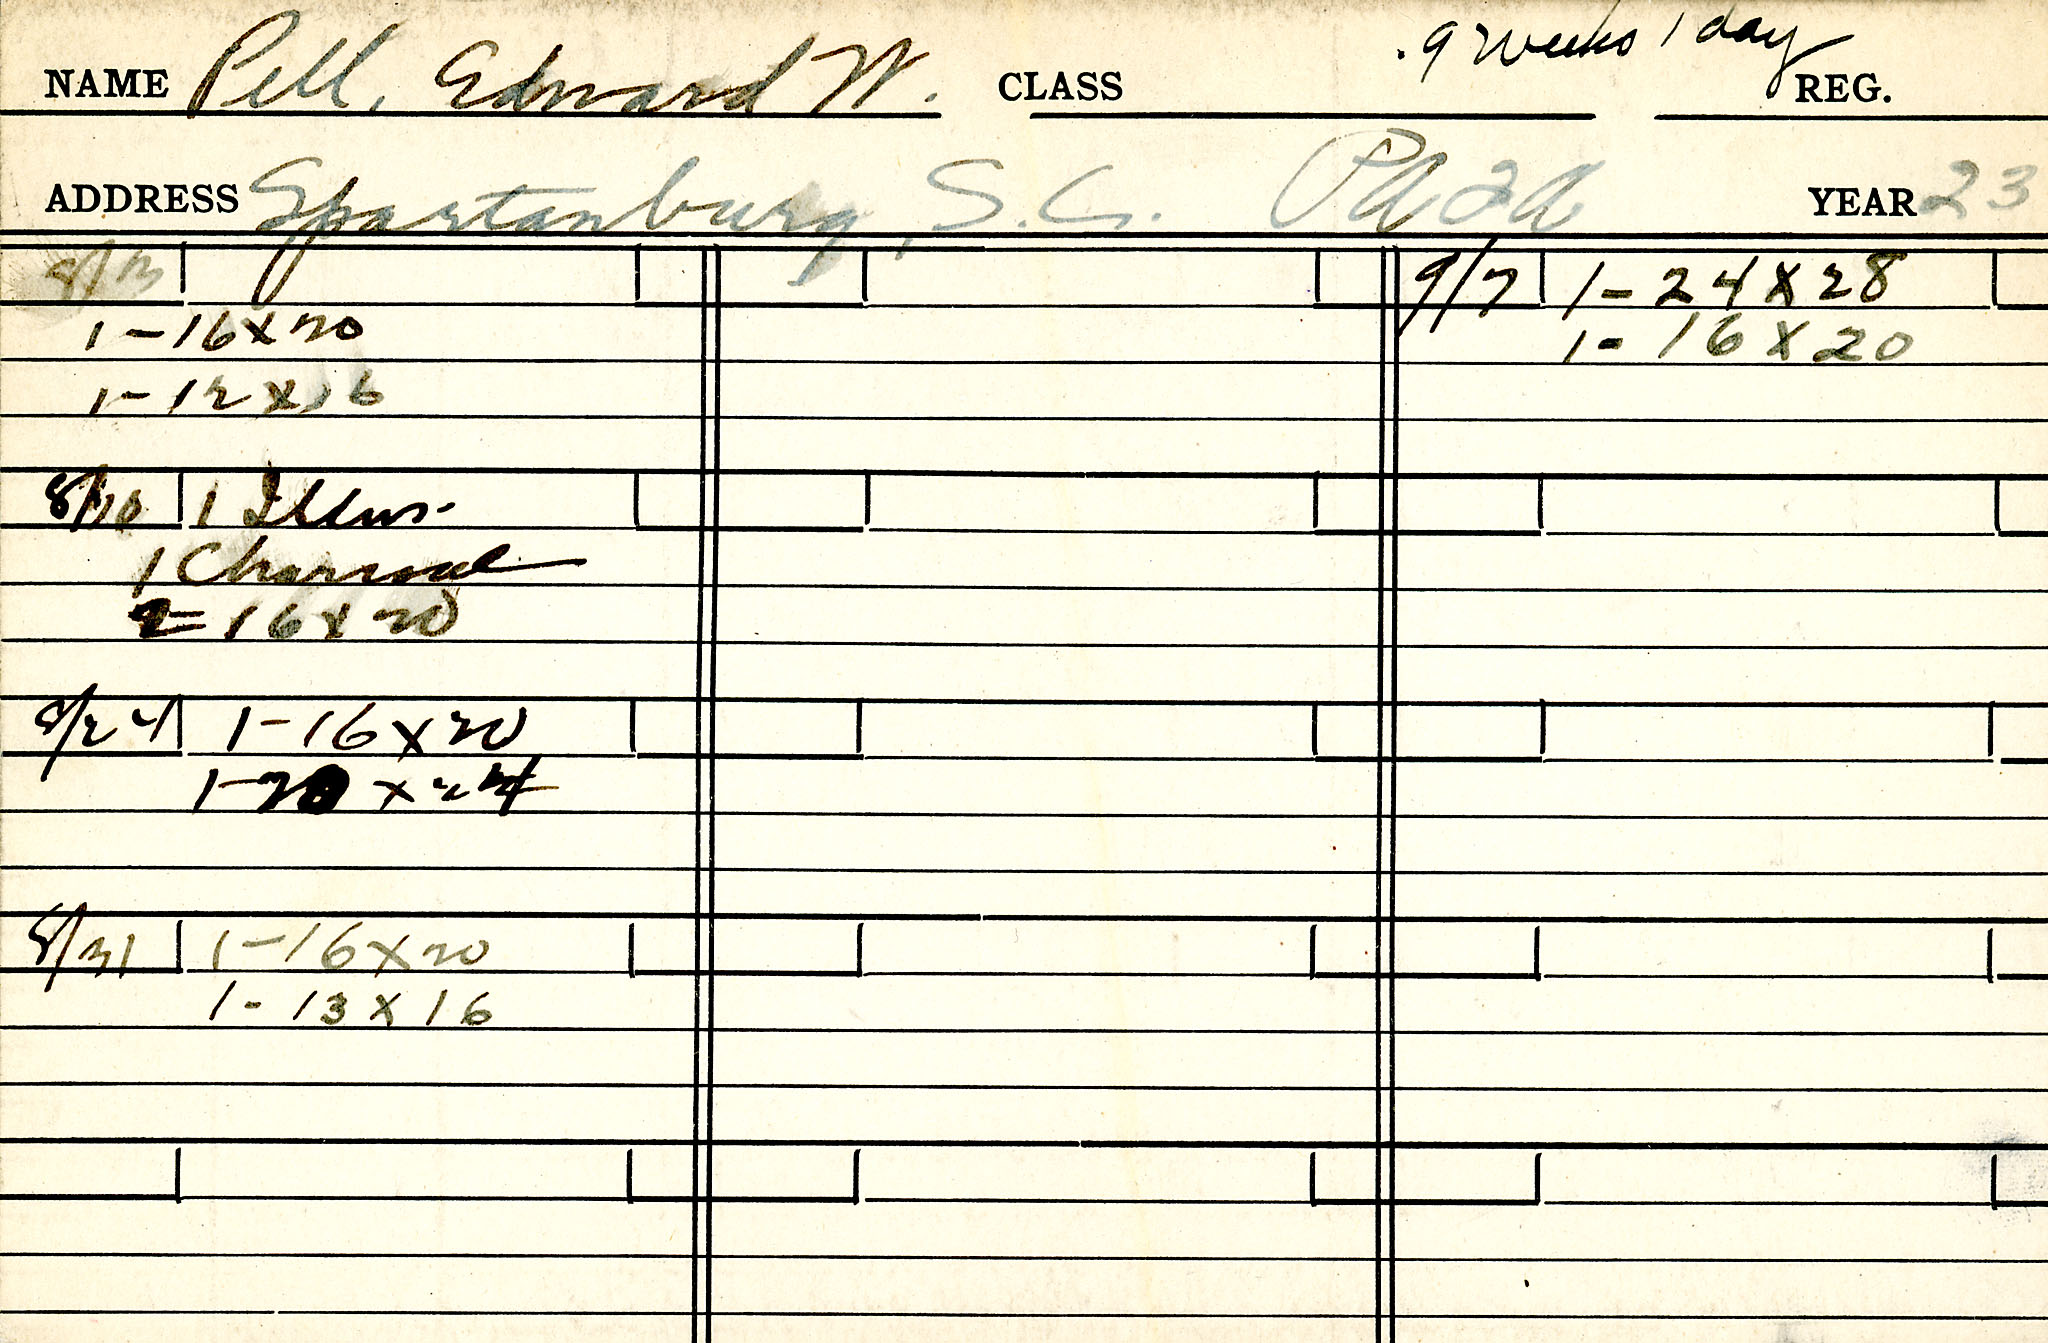 9 weeks 1 day
NAME Pell, Edward W. CLASS REG.
ADDRESS Spartanburg, S.C. YEAR 23
8/3
1-16x20
1-12x16
8/10 1 Illus.
1 Charcoal
2-16x20
8/24 1-16x20
1-20x24
8/31 1-16x20
1-13x16
9/7 1-24x28
1-16x20